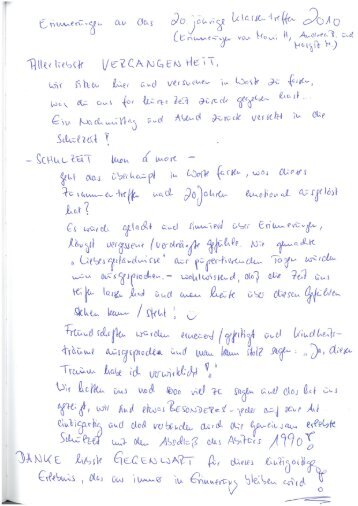 Erinnerungen an das 20 jährige Klassentreffen 2010
(Erinnerungen von Moni H, Andrea B. und
Margit M)
Allerliebste VERGANGENHEIT,
wir sitzen hier und versuchen in Worte zu fassen,
was du uns für kurze Zeit zurück gegeben hast..
Ein Nachmittag und Abend zurück versetzt in die
Schulzeit!
- SCHULZEIT -
geht das überhaupt in Worte fassen, was dieses
Zusammentreffen nach 20 Jahren emotional ausgelöst
hat?
Es wurde gelacht und sinniert über Erinnerungen,
längst vergessene / verdrängte Gefühle. Nie gemachte
"Liebesgeständnisse" aus pupertierenden Tagen wurden
nun ausgesprochen - wohlwissend, daß die Zeit uns
reifen lassen hat und man heute über diesen Gefühlen
stehen kann / steht!
Freundschaften wurden erneuert / gefestigt und Kindheits-
träume ausgesprochen und man kann stolz sagen: "Ja, diesen
Traum habe ich verwirklicht"!
Wir hatten uns viel zu sagen und das hat uns
gezeigt, wir sind etwas BESONDERES - jeder auf seine Art
einzigartig und doch verbunden durch die gemeinsam erlebte
Schulzeit mit dem Abschluß des Abiturs 1990!
DANKE liebste GEGENWART für dieses einzigartige
Erlebnis, das uns immer in Erinnerung bleiben wird!